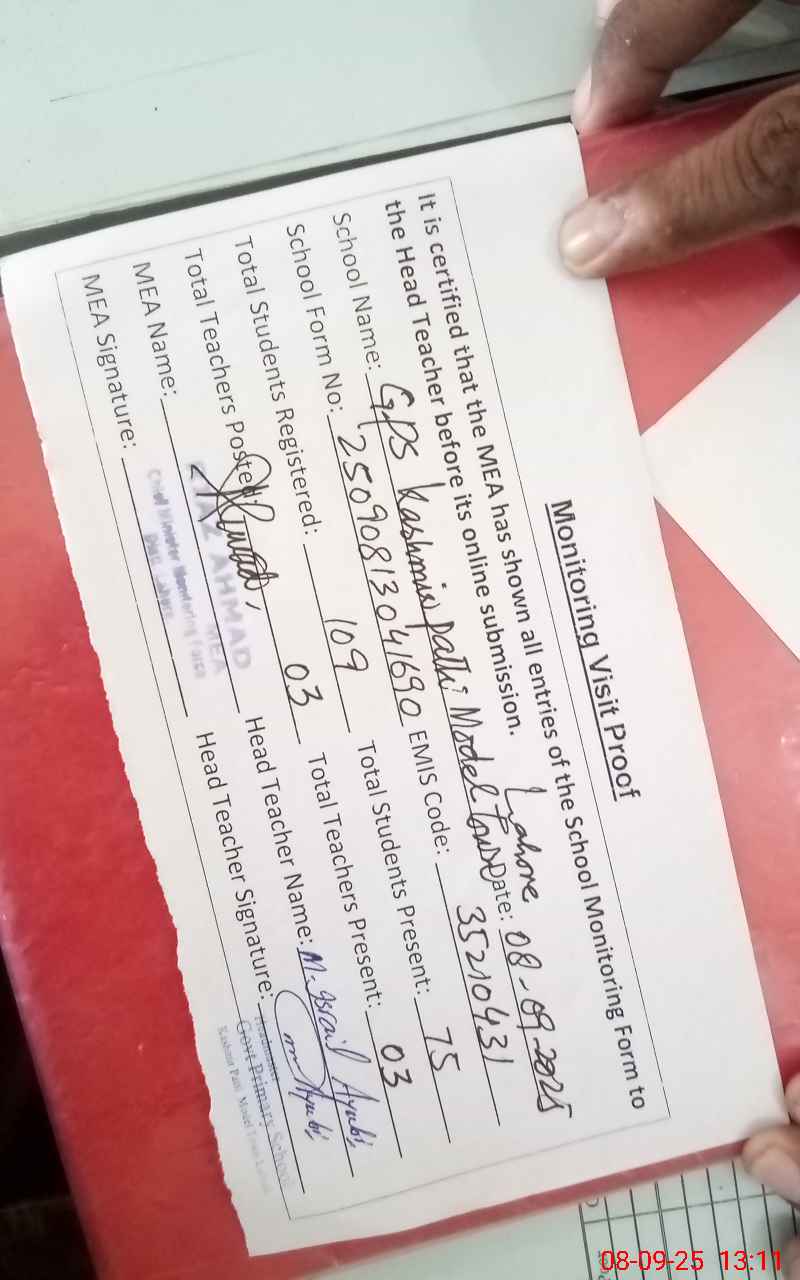 Monitoring Visit Proof
It is certified that the MEA has shown all entries of the School Monitoring Form to
the Head Teacher before its online submission.
School Name: GPS Kashmir Patti Model Town Lahore Date: 08-09-2025
School Form No: 25090813041690 EMIS Code: 35210431
Total Students Registered: 109 Total Students Present: 75
Total Teachers Posted: 03 Total Teachers Present: 03
MEA Name: Head Teacher Name: M. Israil Ayubi
MEA Signature: Head Teacher Signature: Ayubi
AHMAD
MEA
Chief Minister Monitoring Force
Distt. Lahore
Headmaster
Govt Primary School
Model Town
08-09-25 13:11